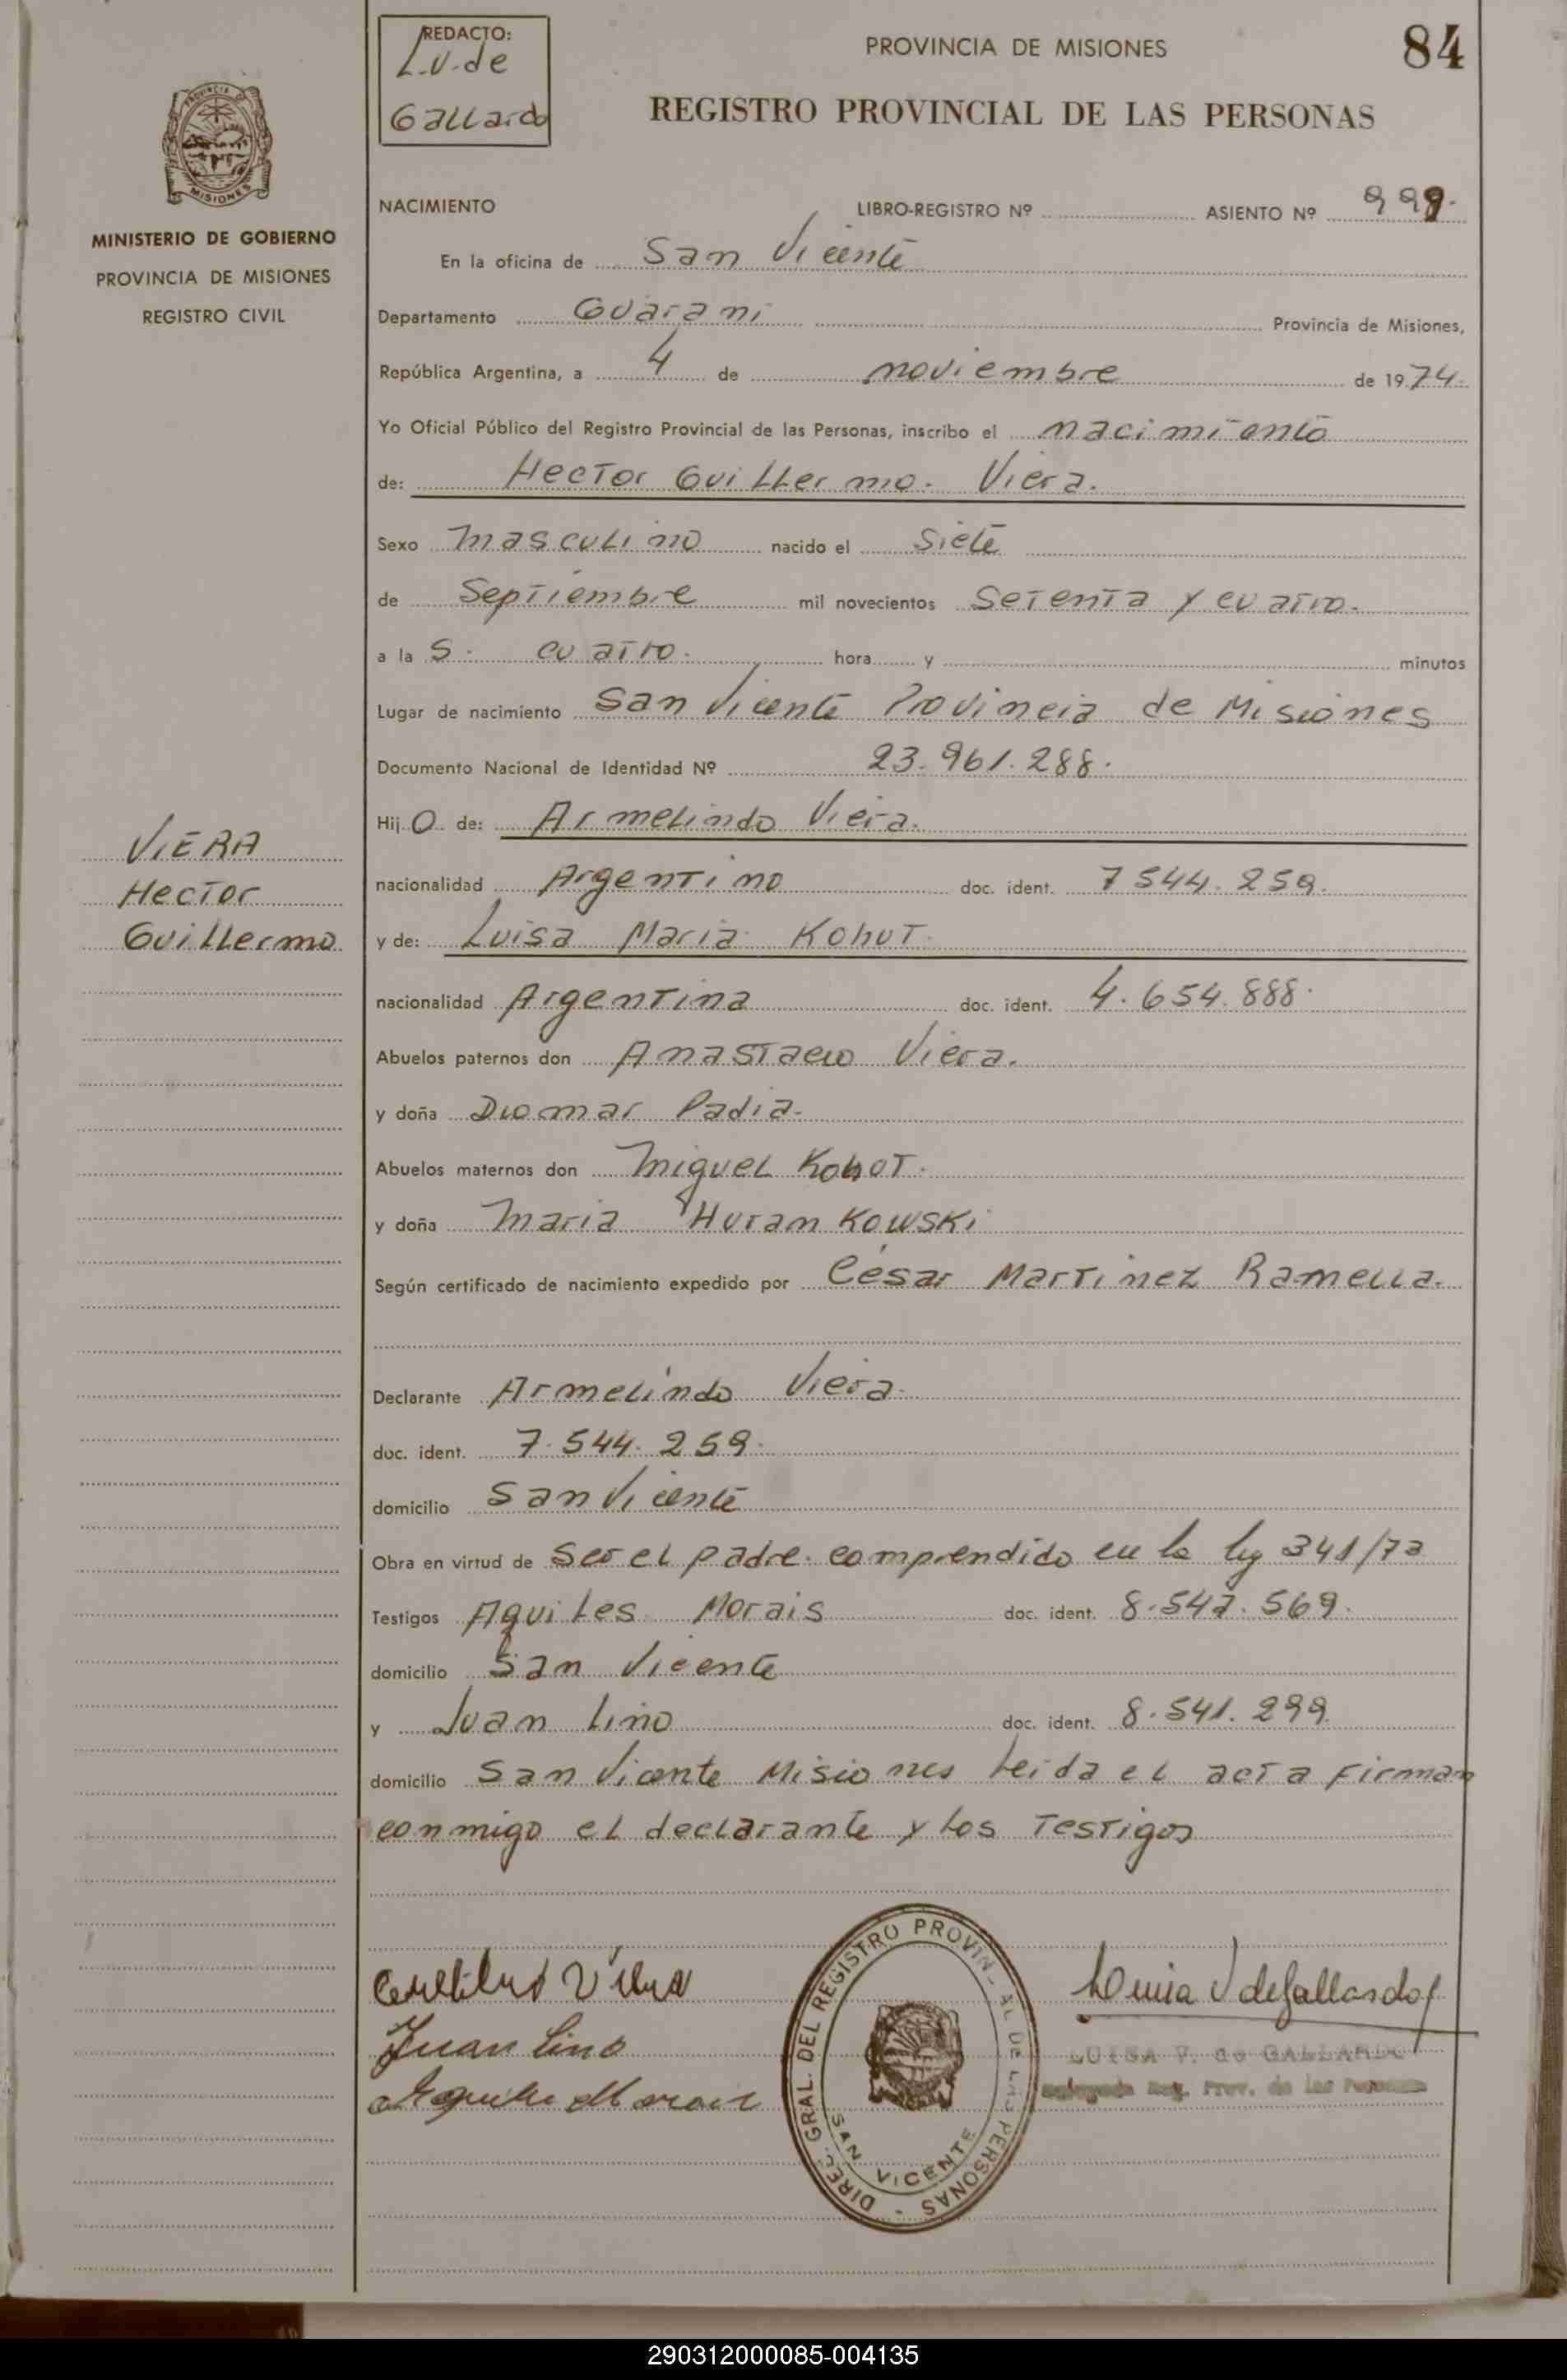 REDACTO:
L.V. de
Gallardo
PROVINCIA DE MISIONES
84
REGISTRO PROVINCIAL DE LAS PERSONAS
PROVINCIA DE
MISIONES
MINISTERIO DE GOBIERNO
PROVINCIA DE MISIONES
REGISTRO CIVIL
NACIMIENTO LIBRO-REGISTRO Nº ASIENTO Nº 999.
En la oficina de San Vicente
Departamento Guarani Provincia de Misiones,
República Argentina, a 4 de noviembre de 1974.
Yo Oficial Público del Registro Provincial de las Personas, inscribo el nacimiento
de: Hector Guillermo. Viera.
Sexo masculino nacido el siete
de Septiembre mil novecientos Setenta y cuatro.
a la s. cuatro. hora y minutos
Lugar de nacimiento San Vicente Provincia de Misiones
Documento Nacional de Identidad Nº 23.961.288.
Hijo de: Armelindo Viera.
nacionalidad Argentino doc. ident. 7544.259.
y de: Luisa Maria Kohut.
nacionalidad Argentina doc. ident. 4.654.888.
Abuelos paternos don Anastacio Viera.
y doña Diomar Padia.
Abuelos maternos don Miguel Kohot.
y doña Maria Huran Kowski
Según certificado de nacimiento expedido por César Martinez Ramella.
Declarante Armelindo Viera.
doc. ident. 7.544.259.
domicilio San Vicente
Obra en virtud de Ser el padre. comprendido en la ley 341/73
Testigos Aquiles Morais doc. ident. 8.542.569.
domicilio San Vicente
y Juan Lino doc. ident. 8.541.299.
domicilio San Vicente Misiones Leida el acta firman
conmigo el declarante y los Testigos
VIERA
Hector
Guillermo
Viera
Juan Lino
Morais
DIREC. GRAL. DEL REGISTRO PROVIN- AL DE LAS PERSONAS -
SAN VICENTE
V de Gallardo
LUISA V. de GALLARDO
Delegada Reg. Prov. de las Personas
290312000085-004135